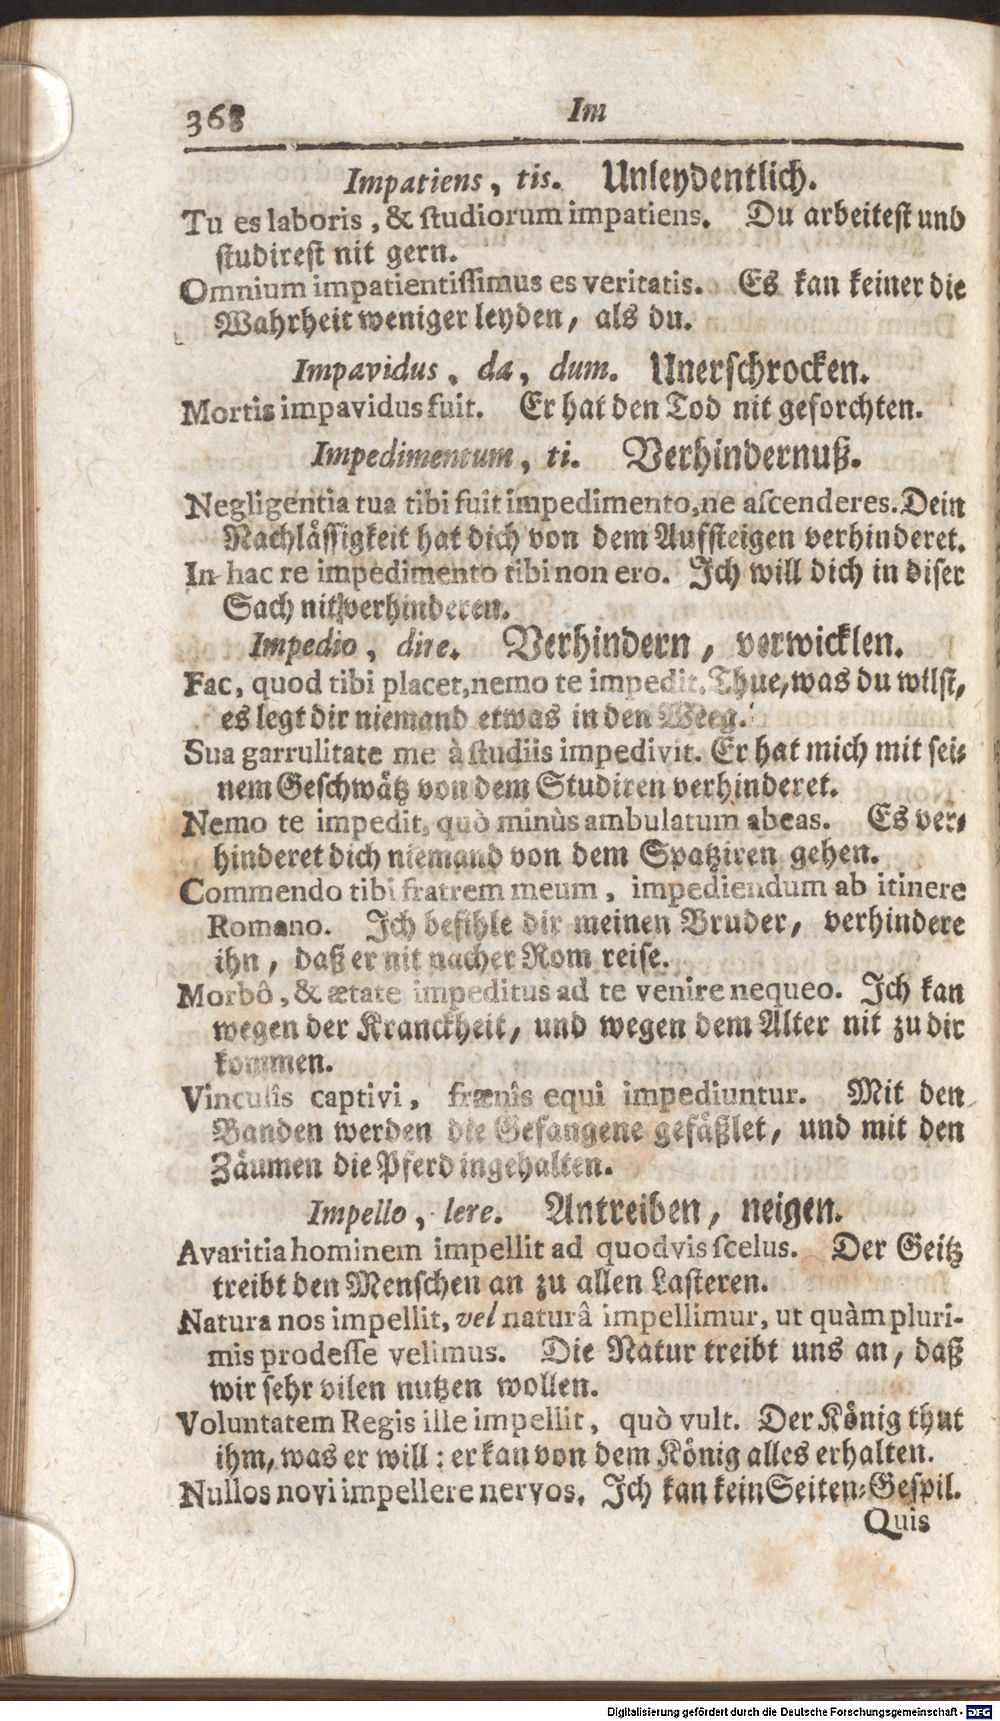 368 Im
Impatiens, tis. Unleydentlich.
Tu es laboris, & studiorum impatiens. Du arbeitest und
studirest nit gern.
Omnium impatientissimus es veritatis. Es kan keiner die
Wahrheit weniger leyden, als du.
Impavidus, da, dum. Unerschrocken.
Mortis impavidus fuit. Er hat den Tod nit geforchten.
Impedimentum, ti. Verhindernuß.
Negligentia tua tibi fuit impedimento, ne ascenderes. Dein
Nachlässigkeit hat dich von dem Aufsteigen verhinderet.
In hac re impedimento tibi non ero. Ich will dich in diser
Sach nit verhinderen.
Impedio, dire. Verhindern, verwicklen.
Fac, quod tibi placet, nemo te impedit. Thue, was du wilst,
es legt dir niemand etwas in den Weeg.
Sua garrulitate me à studiis impedivit. Er hat mich mit sei-
nem Geschwätz von dem Studiren verhinderet.
Nemo te impedit, quò minùs ambulatum abeas. Es ver-
hinderet dich niemand von dem Spatziren gehen.
Commendo tibi fratrem meum, impediendum ab itinere
Romano. Ich befihle dir meinen Bruder, verhindere
ihn, daß er nit nacher Rom reise.
Morbô, & ætate impeditus ad te venire nequeo. Ich kan
wegen der Kranckheit, und wegen dem Alter nit zu dir
kommen.
Vinculîs captivi, frænîs equi impediuntur. Mit den
Banden werden die Gefangene gefäßlet, und mit den
Zäumen die Pferd ingehalten.
Impello, lere. Antreiben, neigen.
Avaritia hominem impellit ad quodvis scelus. Der Geitz
treibt den Menschen an zu allen Lasteren.
Natura nos impellit, vel naturâ impellimur, ut quàm pluri-
mis prodesse velimus. Die Natur treibt uns an, daß
wir sehr vilen nutzen wollen.
Voluntatem Regis ille impellit, quò vult. Der König thut
ihm, was er will: er kan von dem König alles erhalten.
Nullos novi impellere nervos. Ich kan kein Seiten-Gespil.
Quis
Digitalisierung gefördert durch die Deutsche Forschungsgemeinschaft - DFG